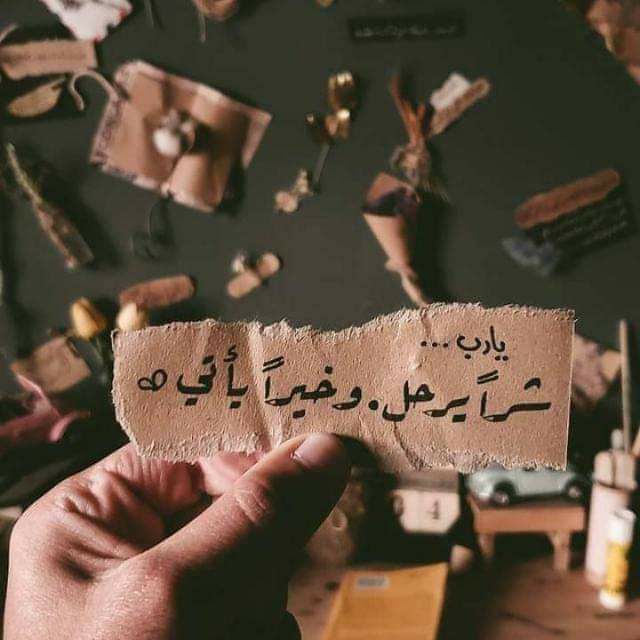 يارب...
شراً يرحل. وخيراً يأتي